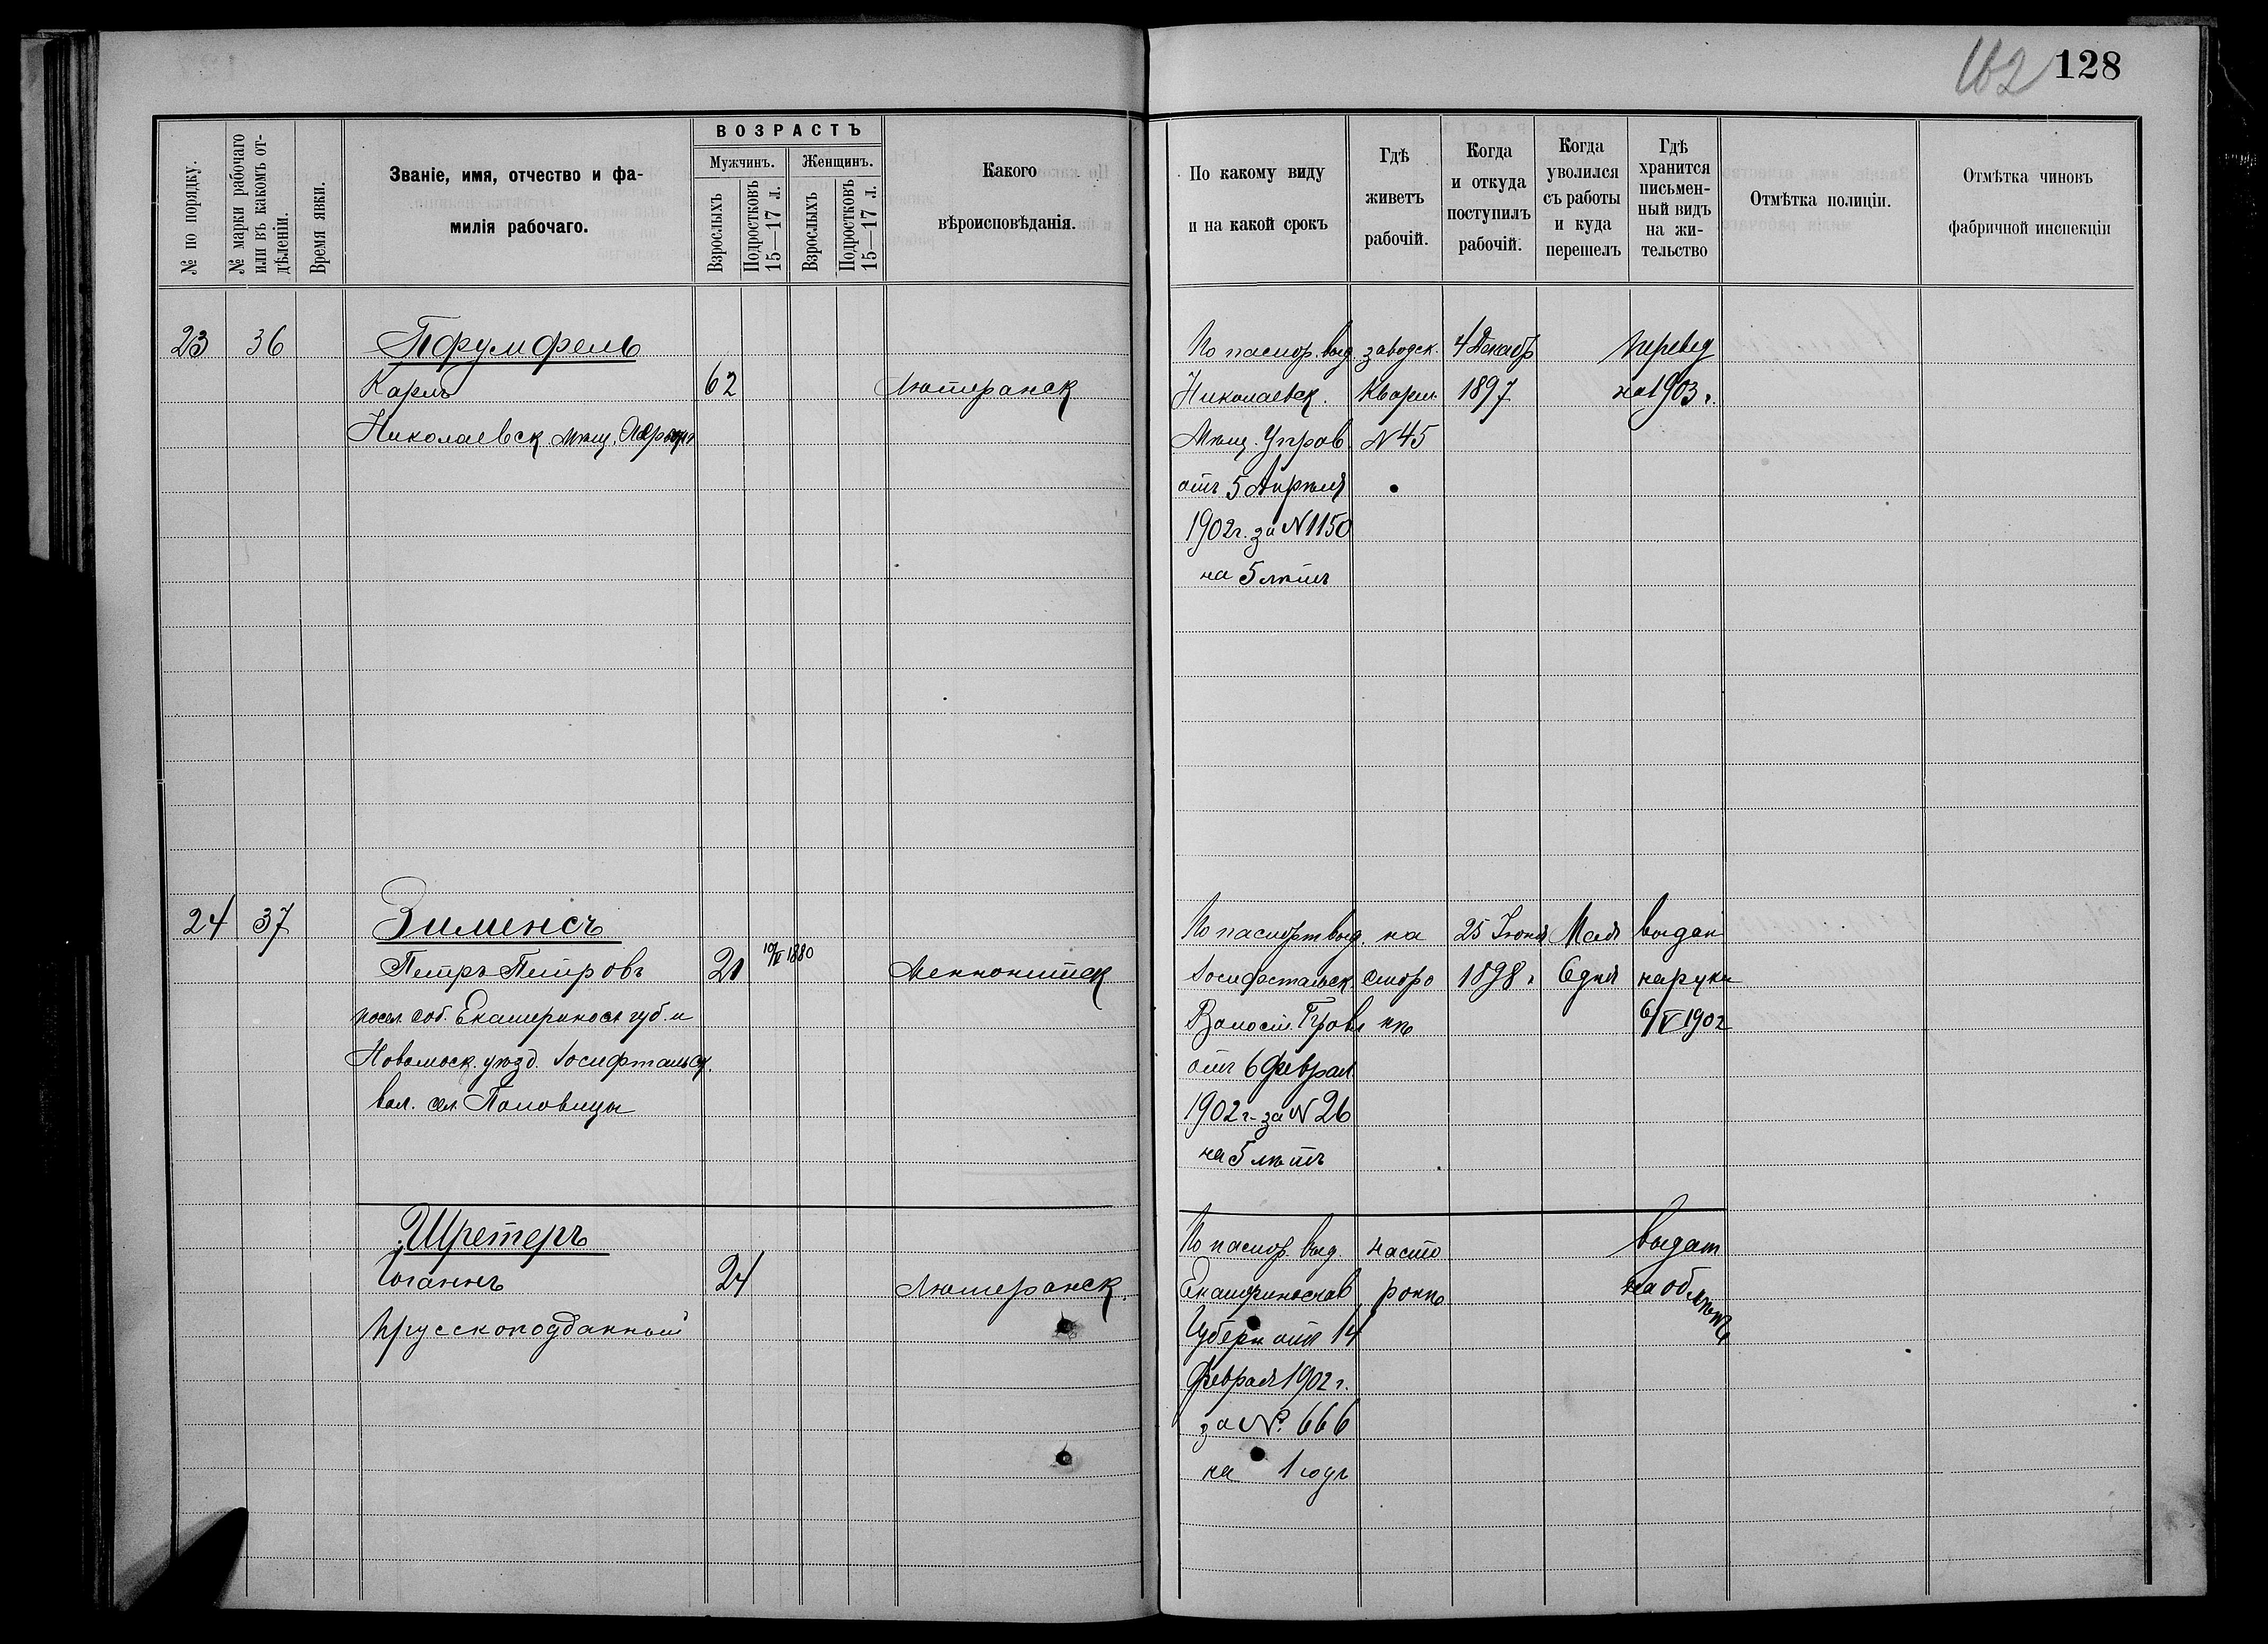 162 128
№ по порядку.
№ марки рабочаго
или въ какомъ от-
дѣленіи.
Время явки.
Званіе, имя, отчество и фа-
милія рабочаго.
ВОЗРАСТЪ
Мужчинъ.
Женщинъ.
Взрослыхъ
Подростковъ
15—17 л.
Взрослыхъ
Подростковъ
15—17 л.
Какого
вѣроисповѣданія.
По какому виду
и на какой срокъ
Гдѣ
живетъ
рабочій.
Когда
и откуда
поступилъ
рабочій.
Когда
уволился
съ работы
и куда
перешелъ
Гдѣ
хранится
письмен-
ный видъ
на жи-
тельство
Отмѣтка полиціи.
Отмѣтка чиновъ
фабричной инспекціи
23 36 Пфумфель
Карлъ 62 Лютеранск
Николаевск. мѣщ.
По паспор. выд.
Николаевск.
Мѣщ. Управ.
отъ 5 Апрѣля
1902 г. за N 1150
на 5 лѣтъ
заводск.
Кварт.
N 45
4 Декабр
1897
перевед
на 1903 г.
24 37 Зименсъ
Петръ Петровъ 21 10/VI 1880 Меннонитск
посел. соб. Екатеринос. губ. и
Новомоск. уѣзд. Іосифтальск.
вол. сел. Поповицы
По паспорт выд.
Іосифстальск.
Волост. Правл
отъ 6 Феврал
1902 г. за N 26
на 5 лѣтъ
на
сторо
нѣ
25 Іюня
1898 г.
Мая
6 дня
выдан
на руки
6/V 1902
Шретеръ
Іоганнъ 24 Лютеранск.
прусскоподданный
По паспор. выд.
Екатеринослав
Губерн отъ 14
Февраля 1902 г.
за №. 666
на 1 годъ
на сто
ронѣ
выдат
на обмѣнъ